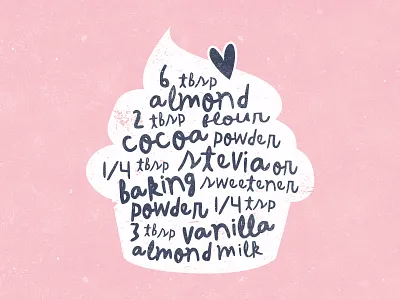 6 tbsp
almond
2 tbsp flour
cocoa powder
1/4 tbsp stevia or
baking sweetener
powder 1/4 tsp
3 tbsp vanilla
almond milk